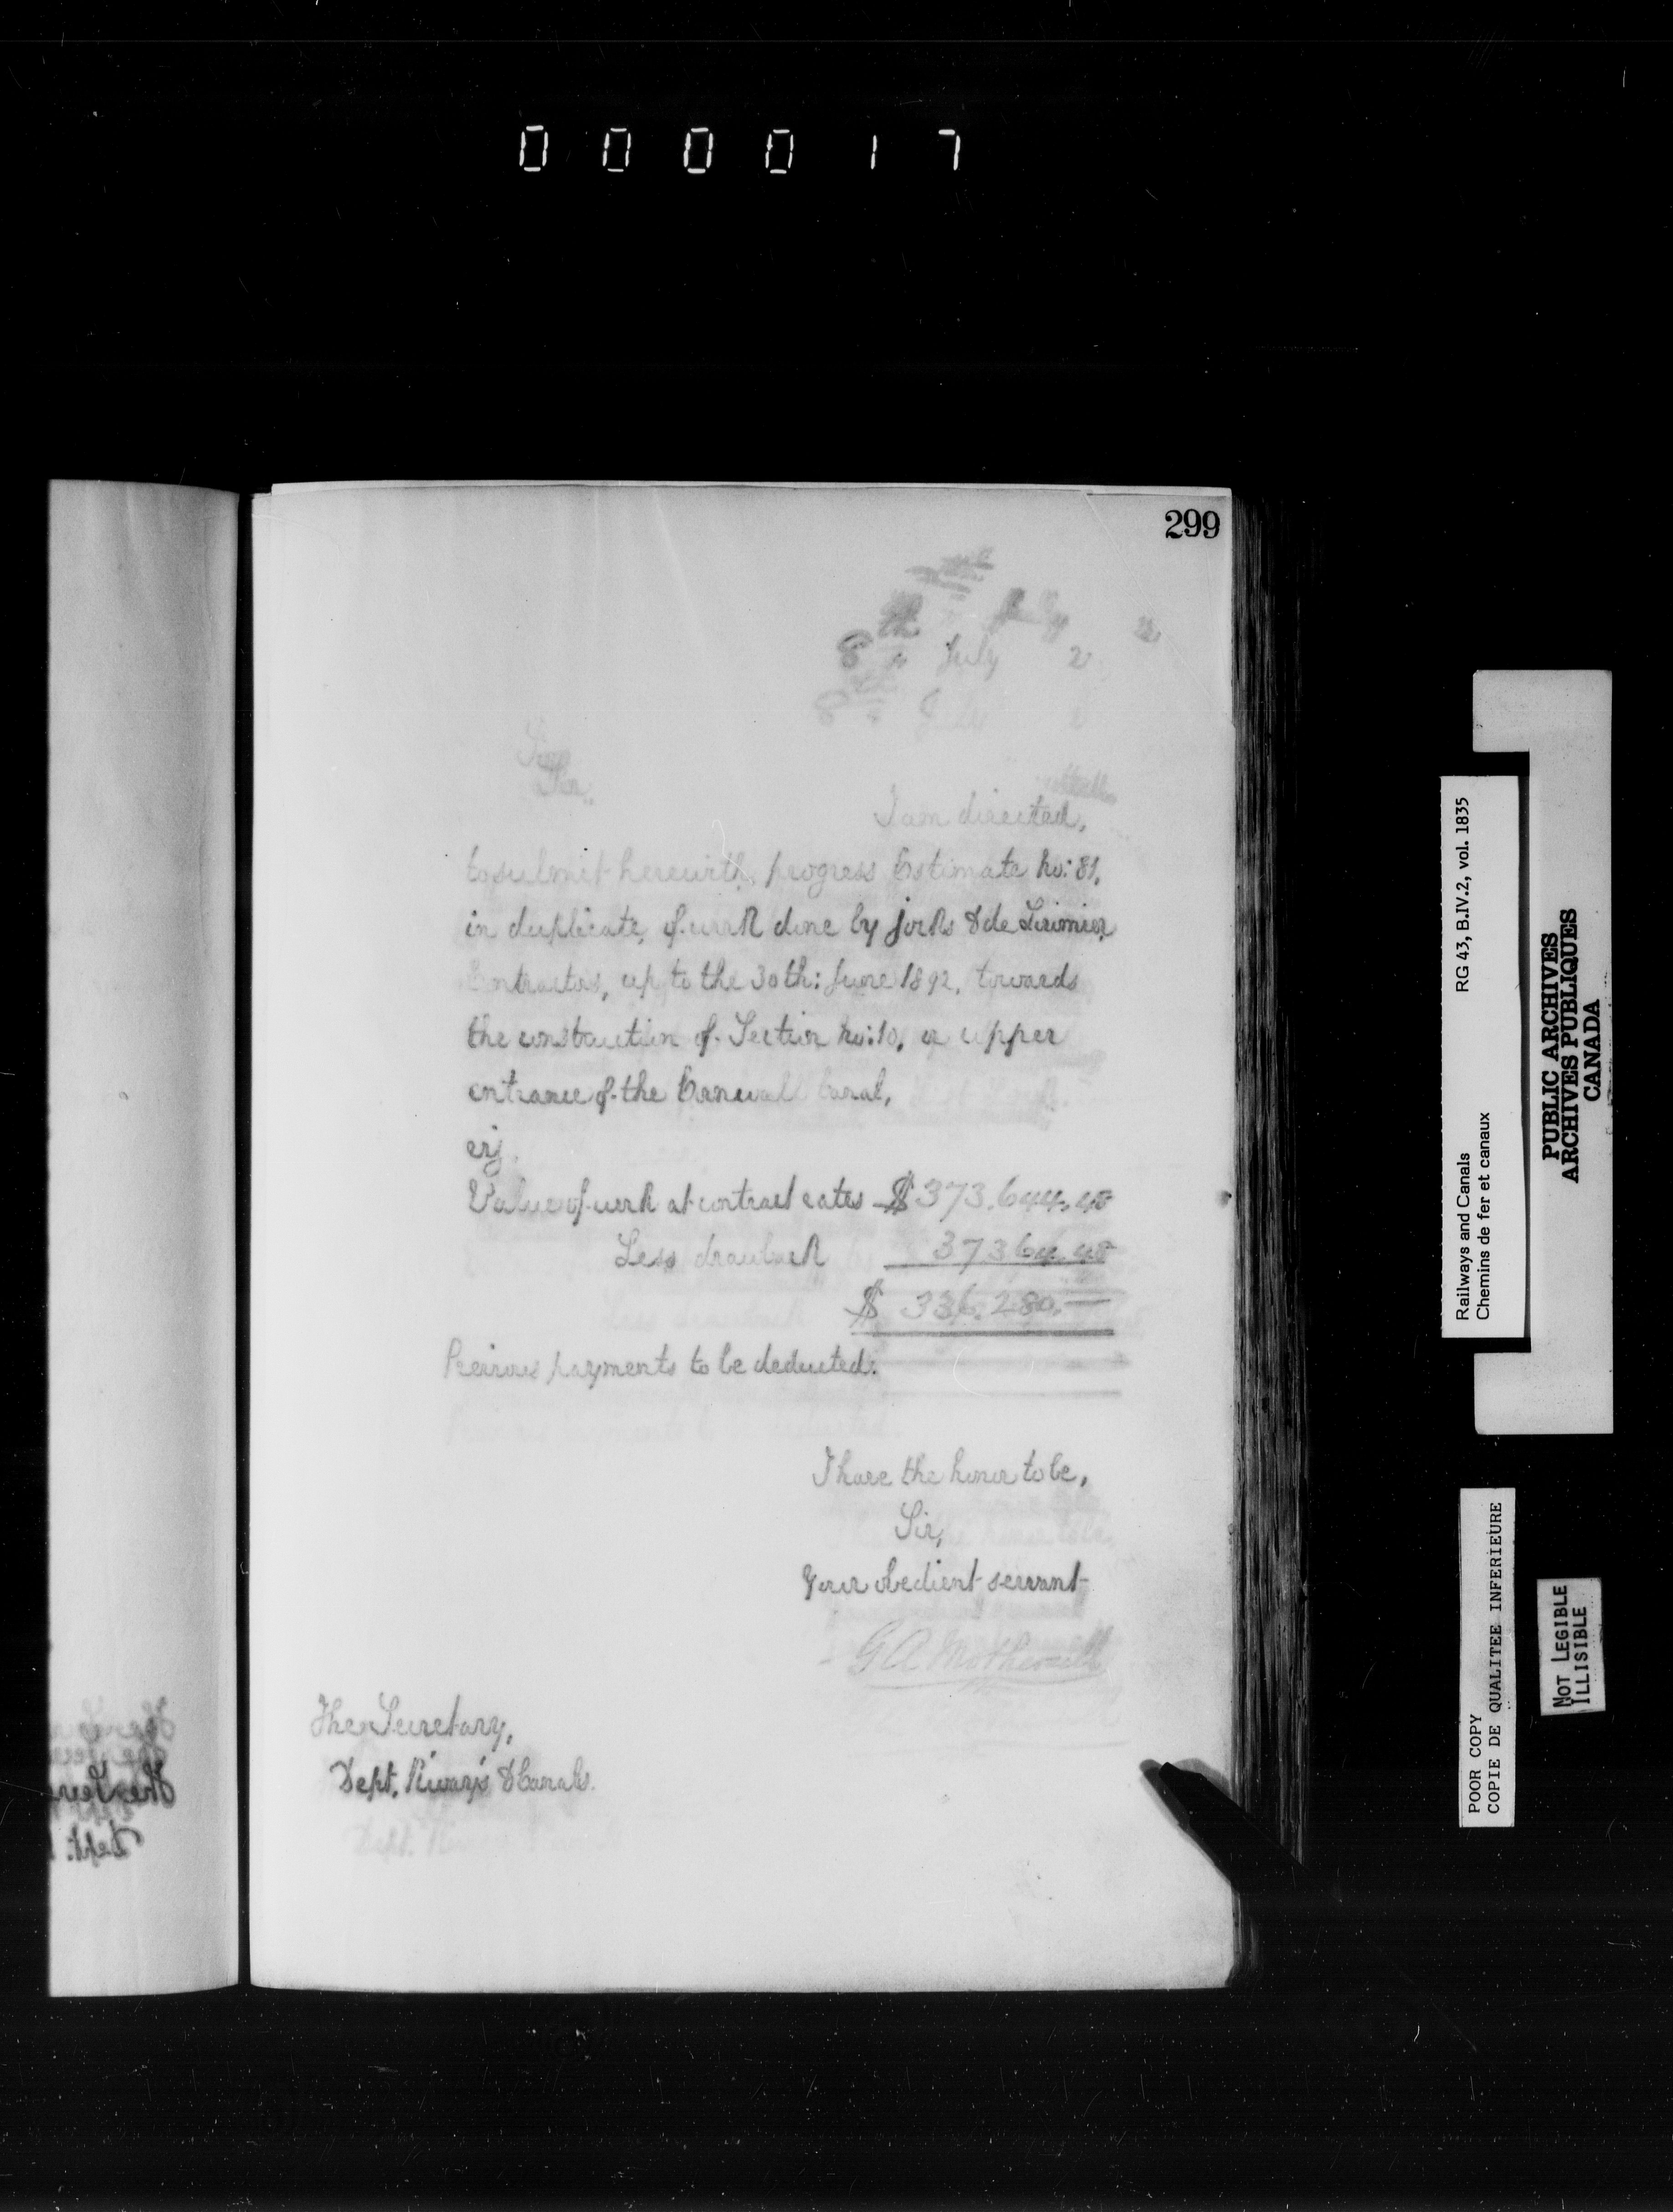 000017
299
8th July 2
Sir,
I am directed,
to submit herewith, progress Estimate No: 81,
in duplicate, of work done by Jocks & de Lorimier,
Contractors, up to the 30th: June 1892, towards
the construction of Section No: 10, or upper
entrance of the Cornwall Canal,
viz.
Value of work at contract rates $373.644.48
Less drawback 37364.48
$ 336.280.—
Previous payments to be deducted.
I have the honor to be,
Sir,
Your obedient servant
G A Mothersill
The Secretary,
Dept. Rlways & Canals.
Railways and Canals RG 43, B.IV.2, vol. 1835
Chemins de fer et canaux
PUBLIC ARCHIVES
ARCHIVES PUBLIQUES
CANADA
POOR COPY
COPIE DE QUALITEE INFERIEURE
NOT LEGIBLE
ILLISIBLE